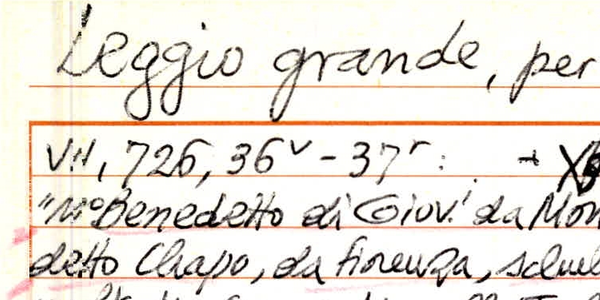 Leggio grande, per
VII, 726, 36v - 37r:
"Mo Benedetto di Giov.' da Mon
detto Chapo, da fiorenza,